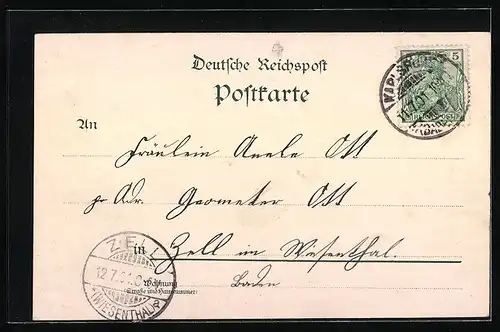 Deutsche Reichspost
Postkarte
5
An
Fräulein Anele Ott
pr Adr. Geometer Ott
in Zell im Wiesenthal.
Baden
Wohnung
(Straße und Hausnummer)
ZELL
12.7.01.8-
(WIESENTHAL)